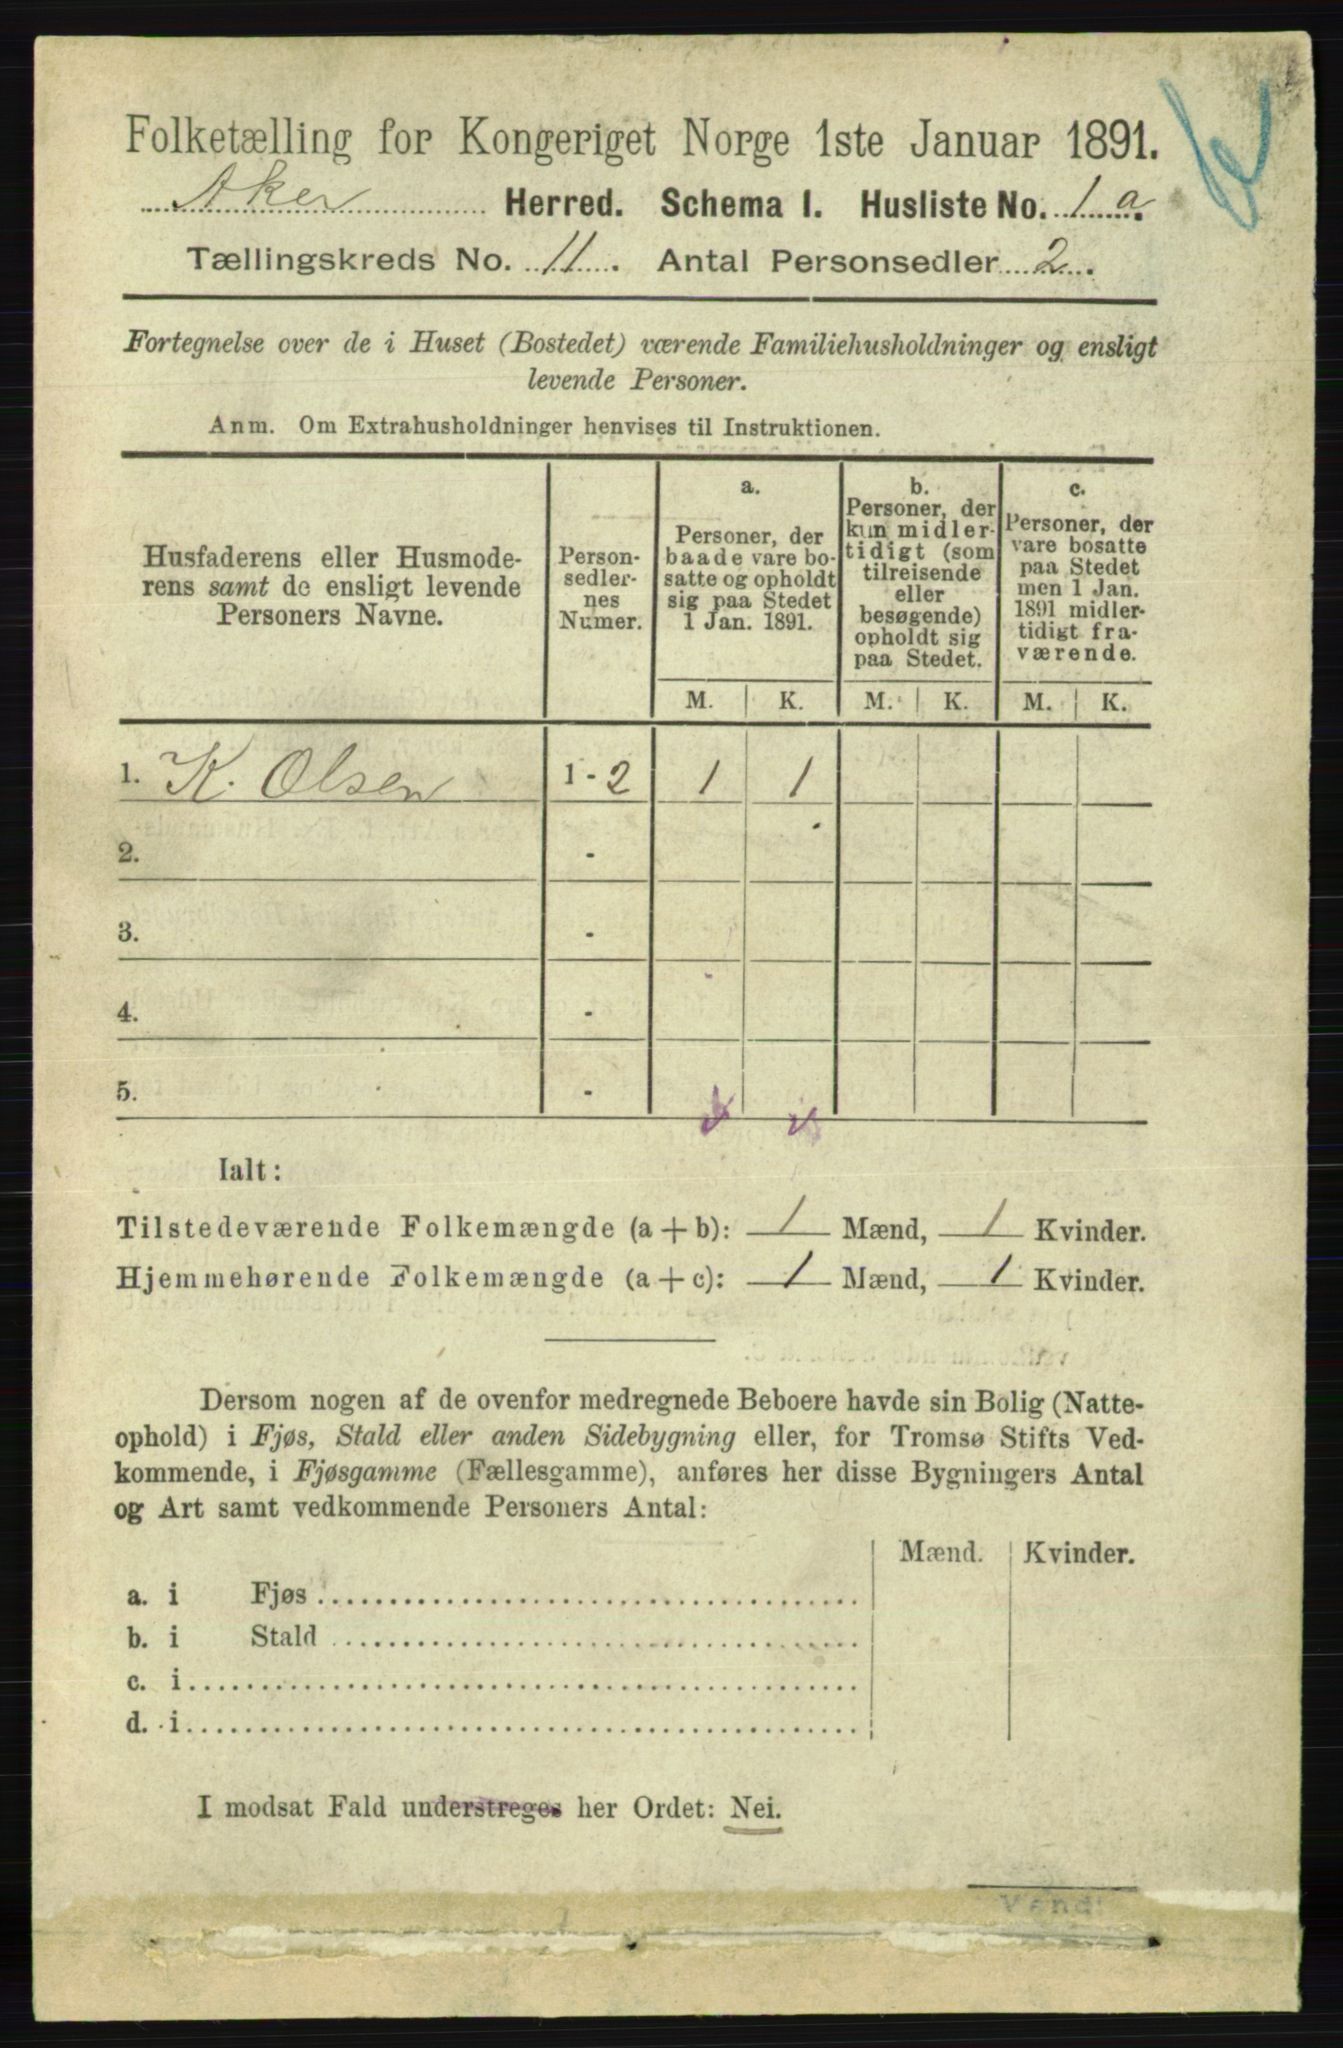 Folketælling for Kongeriget Norge 1ste Januar 1891.
Aker Herred. Schema I. Husliste No. 1 a.
Tællingskreds No. 11. Antal Personsedler 2.
Fortegnelse over de i Huset (Bostedet) værende Familiehusholdninger og ensligt
levende Personer.
Anm. Om Extrahusholdninger henvises til Instruktionen.
Husfaderens eller Husmode-
rens samt de ensligt levende
Personers Navne.
Person-
sedler-
nes
Numer.
a.
Personer, der
baade vare bo-
satte og opholdt
sig paa Stedet
1 Jan. 1891.
b.
Personer, der
kun midler-
tidigt (som
tilreisende
eller
besøgende)
opholdt sig
paa Stedet.
c.
Personer, der
vare bosatte
paa Stedet
men 1 Jan.
1891 midler-
tidigt fra-
værende.
M. K. M. K. M. K.
1. K. Olsen 1 - 2 1 1
2. -
3. -
4. -
5. -
Ialt:
Tilstedeværende Folkemængde (a + b): 1 Mænd, 1 Kvinder.
Hjemmehørende Folkemængde (a + c): 1 Mænd, 1 Kvinder.
Dersom nogen af de ovenfor medregnede Beboere havde sin Bolig (Natte-
ophold) i Fjøs, Stald eller anden Sidebygning eller, for Tromsø Stifts Ved-
kommende, i Fjøsgamme (Fællesgamme), anføres her disse Bygningers Antal
og Art samt vedkommende Personers Antal:
Mænd. Kvinder.
a. i Fjøs
b. i Stald
c. i
d. i
I modsat Fald understreges her Ordet: Nei.
Vend!